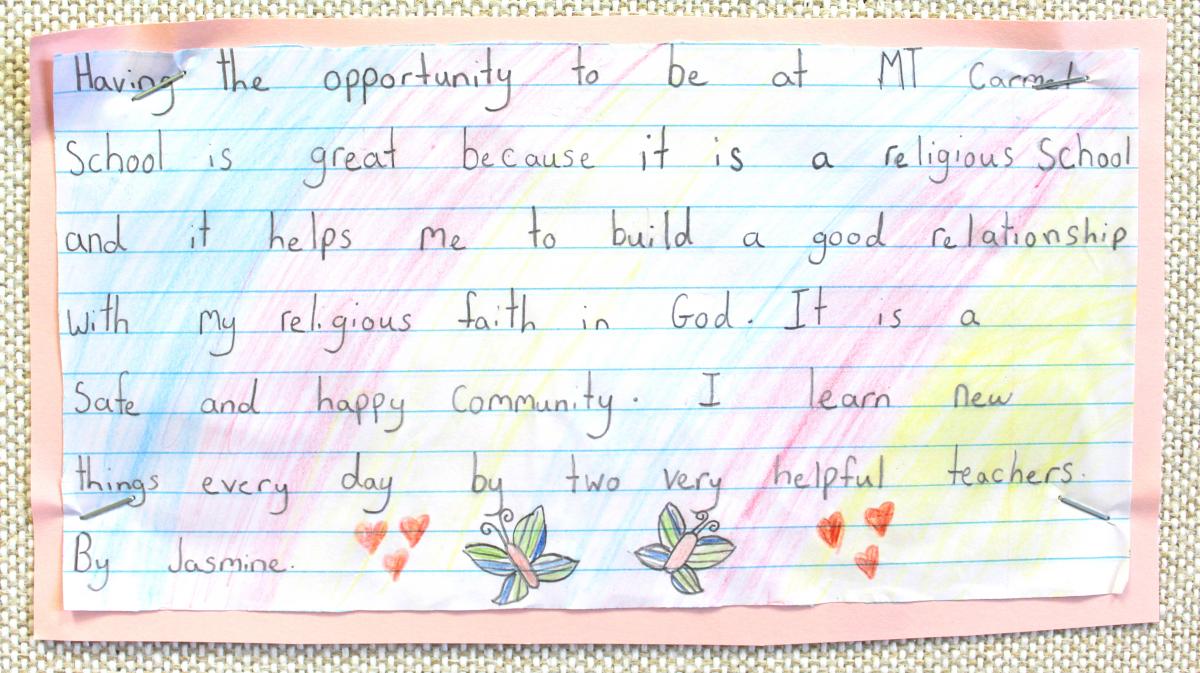 Having the opportunity to be at MT Carmel
School is great because it is a religious School
and it helps me to build a good relationship
with my religious faith in God. It is a
Safe and happy Community. I learn new
things every day by two very helpful teachers.
By Jasmine.